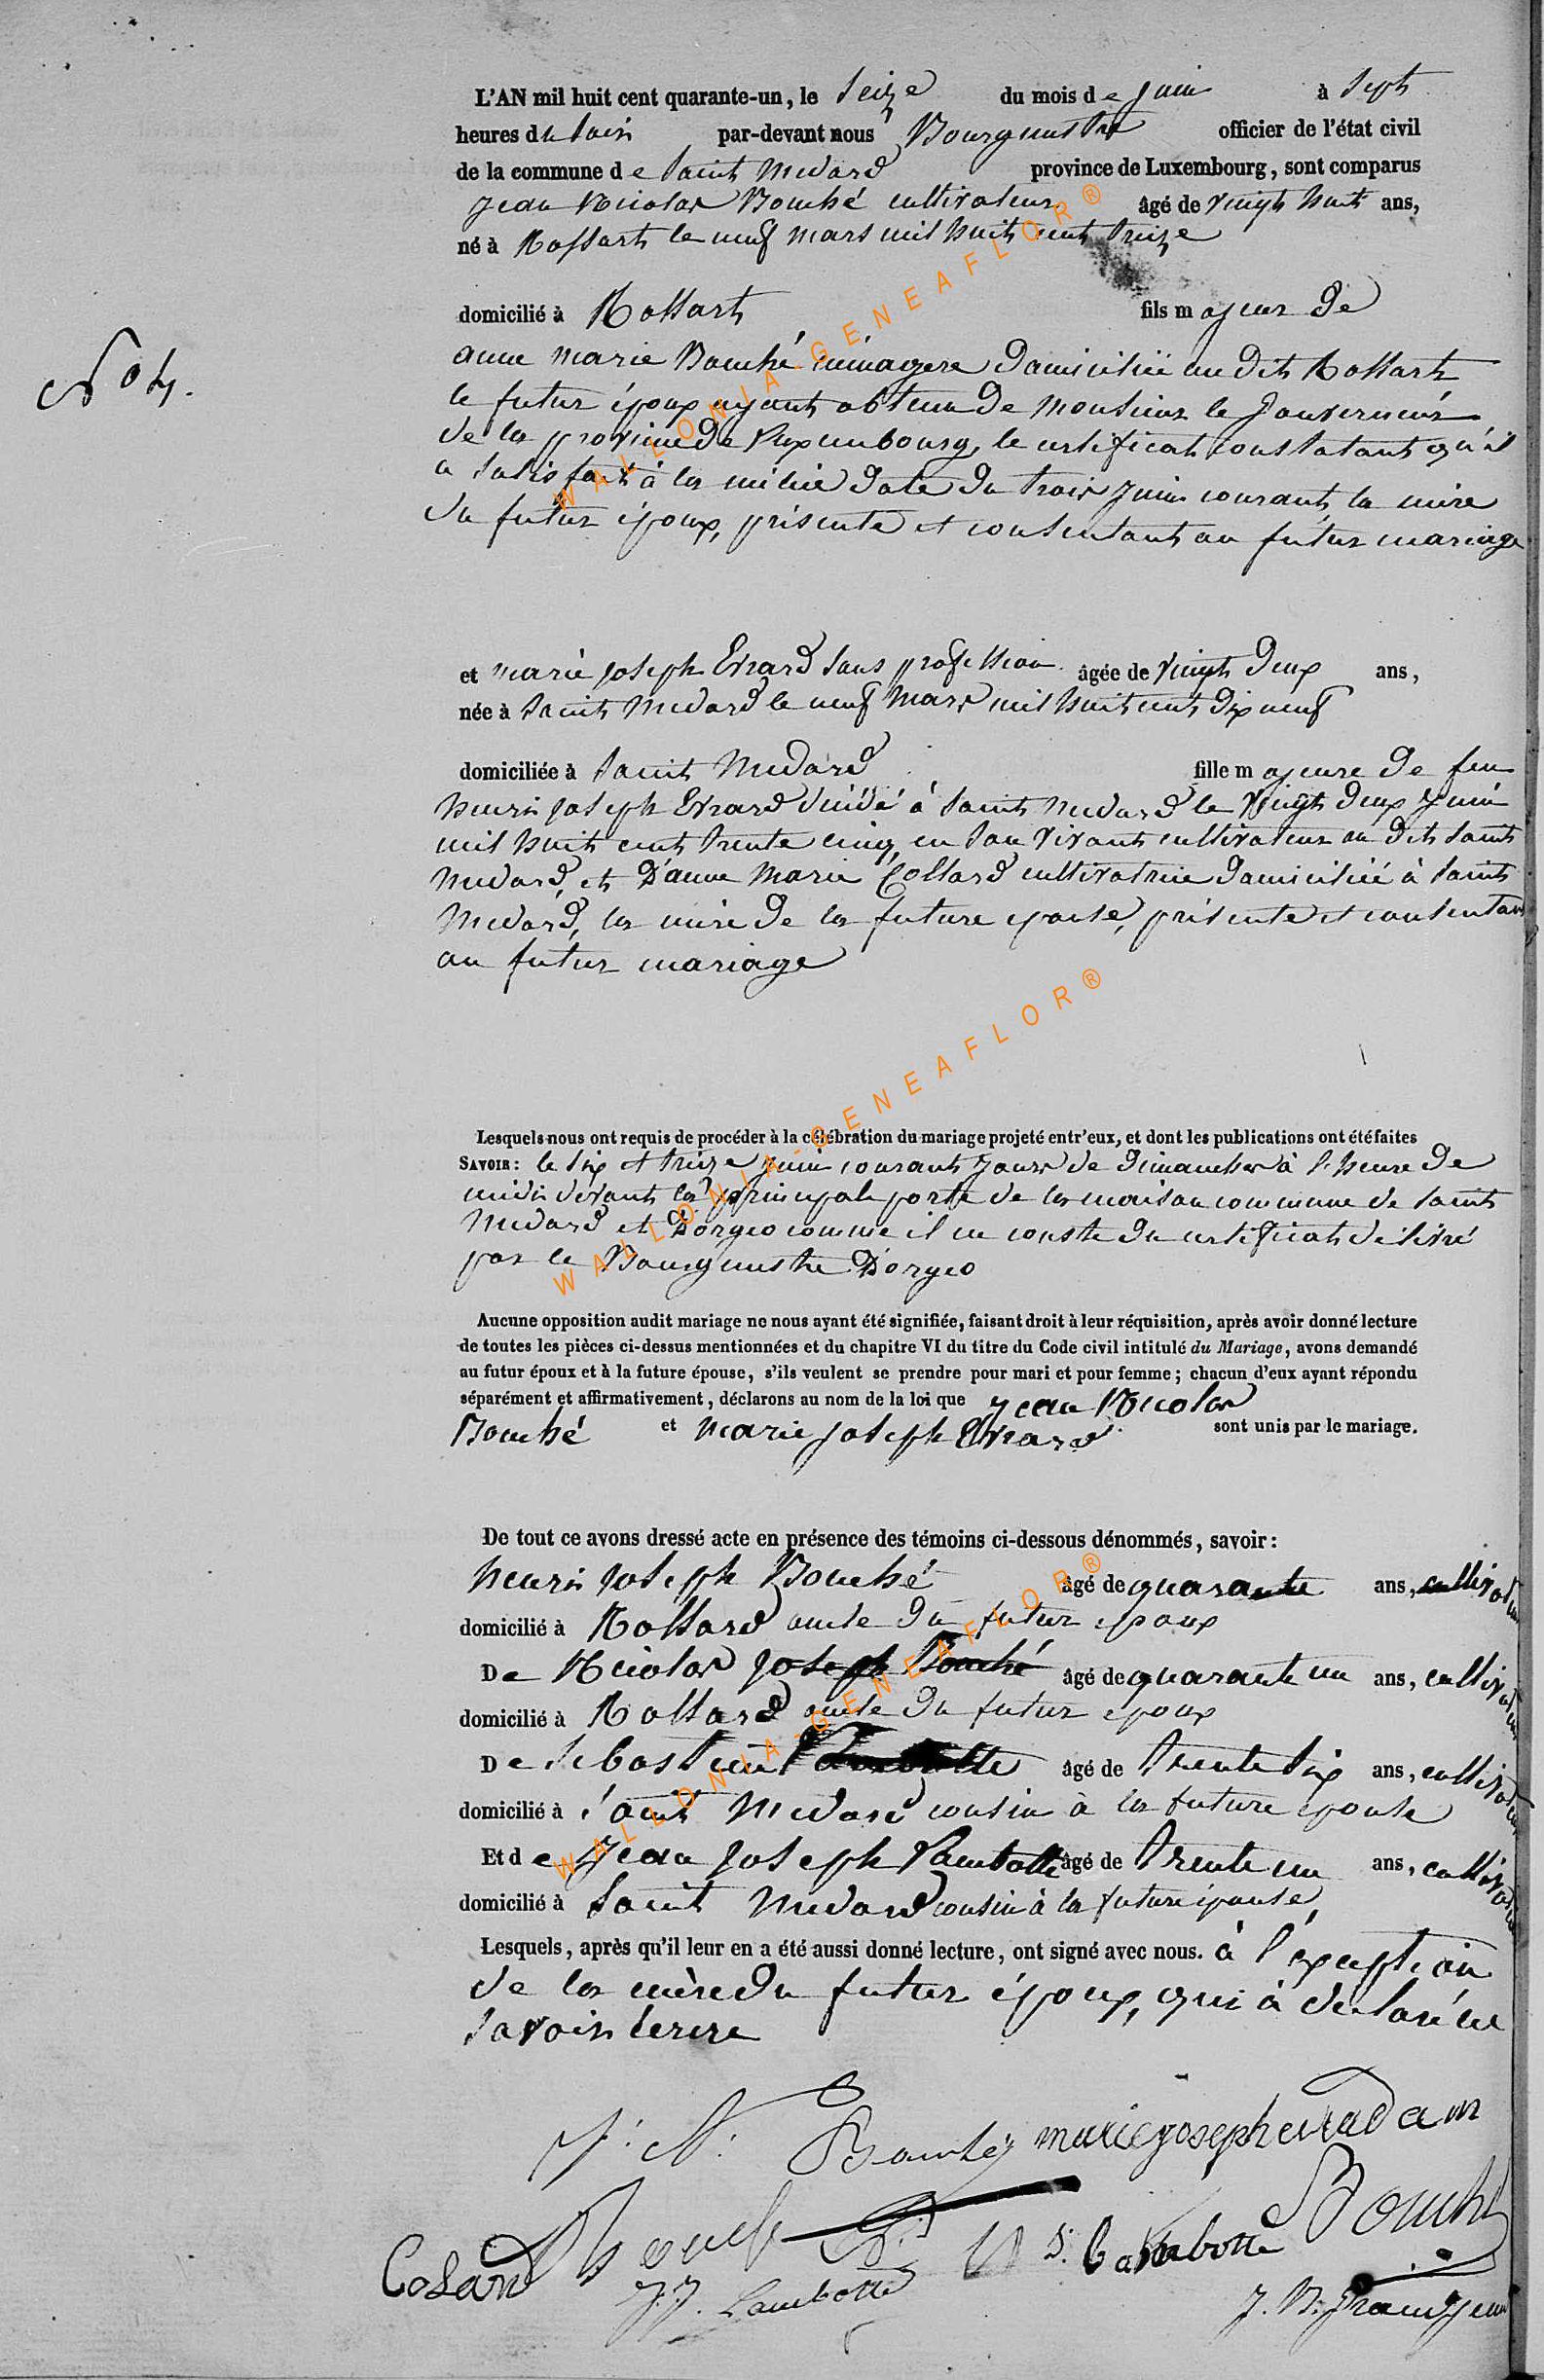 L'AN mil huit cent quarante-un, le seize du mois de juin à sept
heures du soir par-devant nous Bourgmestre officier de l'état civil
de la commune de Saint Medard province de Luxembourg, sont comparus
Jean Nicolas Bouché cultivateur âgé de vingt huit ans,
né à Rossart le neuf mars mil huit cent treize
domicilié à Rossart fils majeur de
No 4.
anne marie Bouché ménagere domiciliée au dit Rossart
le futur époux ayant obtenu de Monsieur le Gouverneur
de la province de Luxembourg, le certificat constatant qu'il
a satisfait à la milice daté du trois juin courant, la mère
du futur époux, présente et consentant au futur mariage
et marie joseph Evrard sans profession âgée de vingt deux ans,
née à Saint Medard le neuf Mars mil huit cent dix neuf
domiciliée à Saint Medard fille majeure de feu
henri joseph Evrard décédé à Saint Medard le vingt deux juin
mil huit cent trente cinq, en son vivant cultivateur au dit Saint
Medard, et D'anne Marie Collard cultivatrice domiciliée à Saint
Medard, la mère de la future epouse, présente et consentant
au futur mariage
Lesquels nous ont requis de procéder à la célébration du mariage projeté entr'eux, et dont les publications ont été faites
SAVOIR: le six et treize juin courant jours de dimanches à l'heure de
midi devant la principale porte de la maison commune de Saint
Medard et D'orgeo comme il en conste du certificat délivré
par le Bourgmestre D'orgeo
Aucune opposition audit mariage ne nous ayant été signifiée, faisant droit à leur réquisition, après avoir donné lecture
de toutes les pièces ci-dessus mentionnées et du chapitre VI du titre du Code civil intitulé du Mariage, avons demandé
au futur époux et à la future épouse, s'ils veulent se prendre pour mari et pour femme; chacun d'eux ayant répondu
séparément et affirmativement, déclarons au nom de la loi que Jean Nicolas
Bouché et Marie joseph Evrard sont unis par le mariage.
De tout ce avons dressé acte en présence des témoins ci-dessous dénommés, savoir:
henri joseph Bouché âgé de quarante ans, cultivateur
domicilié à Rossard oncle du futur epoux
De Nicolas joseph Bouché âgé de quarante un ans, cultivateur
domicilié à Rossard oncle du futur epoux
De Sebastien Lambotte âgé de trente six ans, cultivateur
domicilié à Saint Medard cousin à la future epouse
Et de Jean joseph Lambotte âgé de trente un ans, cultivateur
domicilié à Saint Medard cousin à la future épouse,
Lesquels, après qu'il leur en a été aussi donné lecture, ont signé avec nous. à l'exception
de la mère du futur époux, qui à déclaré ne
savoir écrire
J. N. Bouché marie joseph evrad a m
Colard Bouché S. Lambotte Bouché
J. J. Lambotte J. N. Grandjean
WALLONIA-GENEAFLOR®
WALLONIA-GENEAFLOR®
WALLONIA-GENEAFLOR®